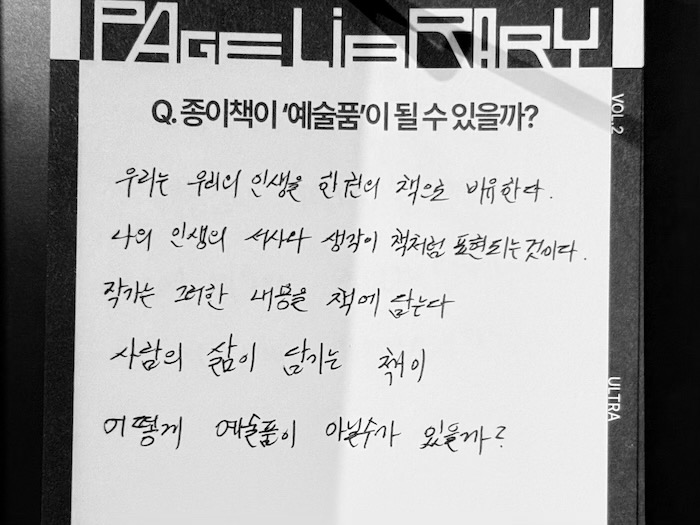 PAGE LIBRARY
VOL.2
Q. 종이책이 '예술품'이 될 수 있을까?
우리는 우리의 인생을 한 권의 책으로 비유한다.
나의 인생의 서사와 생각이 책처럼 표현되는것이다.
작가는 그러한 내용을 책에 담는다
사람의 삶이 담기는 책이
어떻게 예술품이 아닐수가 있을까?
ULTRA